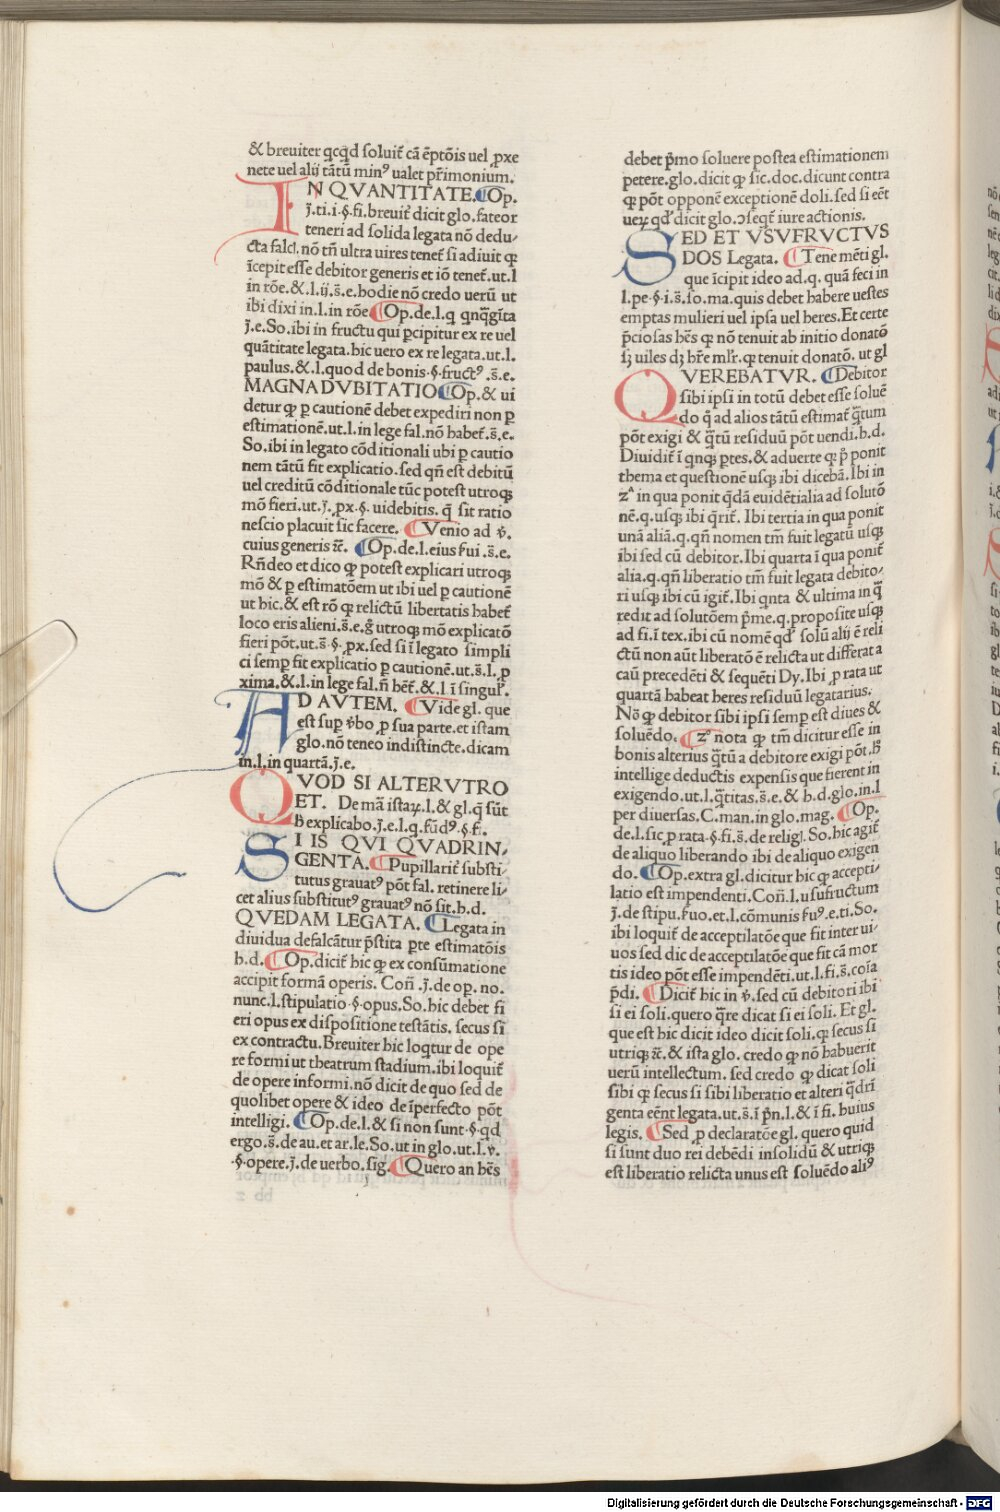 & breuiter qcqd soluit̃ cā ēptōis uel ꝓxe
nete uel alij tātū min⁹ ualet pr̄imonium.
IN QVANTITATE. Op.
j̄.ti.i.§.fi.breuit̃ dicit glo.fateor
teneri ad solida legata nō dedu/
cta falcl. nō tn̄ ultra uires tenet̃ si adiuit ꝙ
īcepit esse debitor generis et iō tenet̃.ut.l
in rōe.&.l.ij.s̄.e.hodie nō credo uerū ut
ibi dixi in.l.in rōe Op.de.l.q qnqgīta
j̄.e.So.ibi in fructu qui pcipitur ex re uel
quātitate legata.hic uero ex re legata.ut.l.
paulus.&.l.quod de bonis.§.fruct⁹.s̄.e.
MAGNA DVBITATIO Op.& ui
detur ꝙ ꝑ cautionē debet expediri non ꝑ
estimationē.ut.l.in lege fal.nō habet̃.s̄.e.
So.ibi in legato cōditionali ubi ꝑ cautio
nem tātū fit explicatio.sed qn̄ est debitū
uel creditū cōditionale tūc potest utroqꝫ
mō fieri.ut.j̄.ꝓx.§.uidebitis.q̄ sit ratio
nescio placuit sic facere. Venio ad ꝟ.
cuius generis ⁊c̄. Op.de.l.eius fui.s̄.e.
Rn̄deo et dico ꝙ potest explicari utroqꝫ
mō & ꝑ estimatōem ut ibi uel ꝑ cautionē
ut hic.& est rō ꝙ relictū libertatis habet̃
loco eris alieni.s̄.e.g̊ utroqꝫ mō explicatō
fieri pōt.ut.s̄.§.ꝓx.sed si ī legato simpli
ci semꝑ fit explicatio ꝑ cautionē.ut.s̄.l.ꝓ
xima.&.l.in lege fal.n̄ hēt̃.&.l.ī singul'.
AD AVTEM. Vide gl. que
est sup ꝟbo ꝓ sua parte.et istam
glo.nō teneo indistincte.dicam
in.l.in quartā.j̄.e.
QVOD SI ALTERVTRO
ET. De mā istaꝝ.l.& gl.q̄ sūt
ħ explicabo.j̄.e.l.q.fūd⁹.§.fi.
SI IS QVI QVADRIN/
GENTA. Pupillarit̃ substi/
tutus grauat⁹ pōt fal. retinere li/
cet alius substitut⁹ grauat⁹ nō sit.h.d.
QVEDAM LEGATA. Legata in
diuidua defalcātur p̄stita ꝑte estimatōis
h.d. Op.dicit̃ hic ꝙ ex consūmatione
accipit formā operis. Con̄ .j̄.de op. no.
nunc.l.stipulatio.§.opus.So.hic debet fi
eri opus ex dispositione testātis. secus si
ex contractu.Breuiter hic loqtur de ope
re formi ut theatrum stadium.ibi loquit̃
de opere informi.nō dicit de quo sed de
quolibet opere & ideo de īperfecto pōt
intelligi. Op.de.l.& si non sunt.§.qd
ergo.s̄.de au.et ar.le.So.ut in glo.ut.l.ꝟ.
.§.opere.j̄.de uerbo.sig. Quero an hēs
debet p̄mo soluere postea estimationem
petere.glo.dicit ꝙ sic.doc.dicunt contra
ꝙ pōt opponē exceptionē doli.sed si eēt
ueꝝ qd' dicit glo.ↄseqt̃ iure actionis.
SED ET VSVFRVCTVS
DOS Legata. Tene mēti gl.
que īcipit ideo ad.q. quā feci in
l.pe.§.i.s̄.so.ma.quis debet habere uestes
emptas mulieri uel ipsa uel heres.Et certe
p̄ciosas hēs ꝙ nō tenuit ab initio donatō
sꝫ uiles dꝫ hr̄e ml'r.ꝙ tenuit donatō. ut gl
QVEREBATVR. Debitor
sibi ipsi in totū debet esse soluē
do q̇ ad alios tātū estimat̃ q̄tum
pōt exigi & q̄tū residuū pōt uendi.h.d.
Diuidit̃ ī qnqꝫ ꝑtes.& aduerte ꝙ p̊ ponit
thema et questionē usqꝫ ibi dicebā.Ibi in
z^a in qua ponit q̄dā euidētialia ad solutō
nē.q.usqꝫ ibi q̄rit̃. Ibi tertia in qua ponit
unā aliā.q.qn̄ nomen tm̄ fuit legatū usqꝫ
ibi sed cū debitor.Ibi quarta ī qua ponit̃
alia.q.qn̄ liberatio tm̄ fuit legata debito/
ri usqꝫ ibi cū igit̃.Ibi qnta & ultima in q̄
redit ad solutōem p̄me.q.proposite usqꝫ
ad fi.ī tex.ibi cū nomē qd' solū alij ē reli
ctū non aūt liberatō ē relicta ut differat a
caū precedēti & sequēti Dy.Ibi ꝓ rata ut
quartā habeat heres residuū legatarius.
Nō ꝙ debitor sibi ipsi semꝑ est diues &
soluēdo. z° nota ꝙ tm̄ dicitur esse in
bonis alterius q̄tū a debitore exigi pōt.ħ
intellige deductis expensis que fierent in
exigendo.ut.l.q̄titas.s̄.e.& h.d.glo.in.l
per diuersas.C.man.in glo.mag. Op.
de.l.si c̄.ꝓ rata.§.fi.s̄.de religi.So.hic agit̃
de aliquo liberando ibi de aliquo exigen
do. Op.extra gl.dicitur hic ꝙ accepti/
latio est impendenti. Con̄.l.usufructum
j̄.de stipu.ẛuo.et.l.cōmunis ẛu⁹.e.ti.So.
ibi loquit̃ de acceptilatōe que fit inter ui/
uos sed dic de acceptilatōe que fit cā mor
tis ideo pōt esse impendēti.ut.l.si.s̄.coīa
p̄di. Dicit̃ hic in ꝟ.sed cū debitori ibi
si ei soli.quero q̄re dicat si ei soli. Et gl.
que est hic dicit ideo dicit soli.qꝫ secus si
utriqꝫ ⁊c̄.& ista glo. credo ꝙ nō habuerit
uerū intellectum. sed credo ꝙ dicat soli
sibi ꝙ secus si sibi liberatio et alteri q̄drī
genta eēnt legata.ut.s̄.ī pn̄.l.& ī fi. huius
legis. Sed ꝓ declaratōe gl. quero quid
si sunt duo rei debēdi insolidū & utriqꝫ
est liberatio relicta unus est soluēdo ali⁹
Digitalisierung gefördert durch die Deutsche Forschungsgemeinschaft - DFG